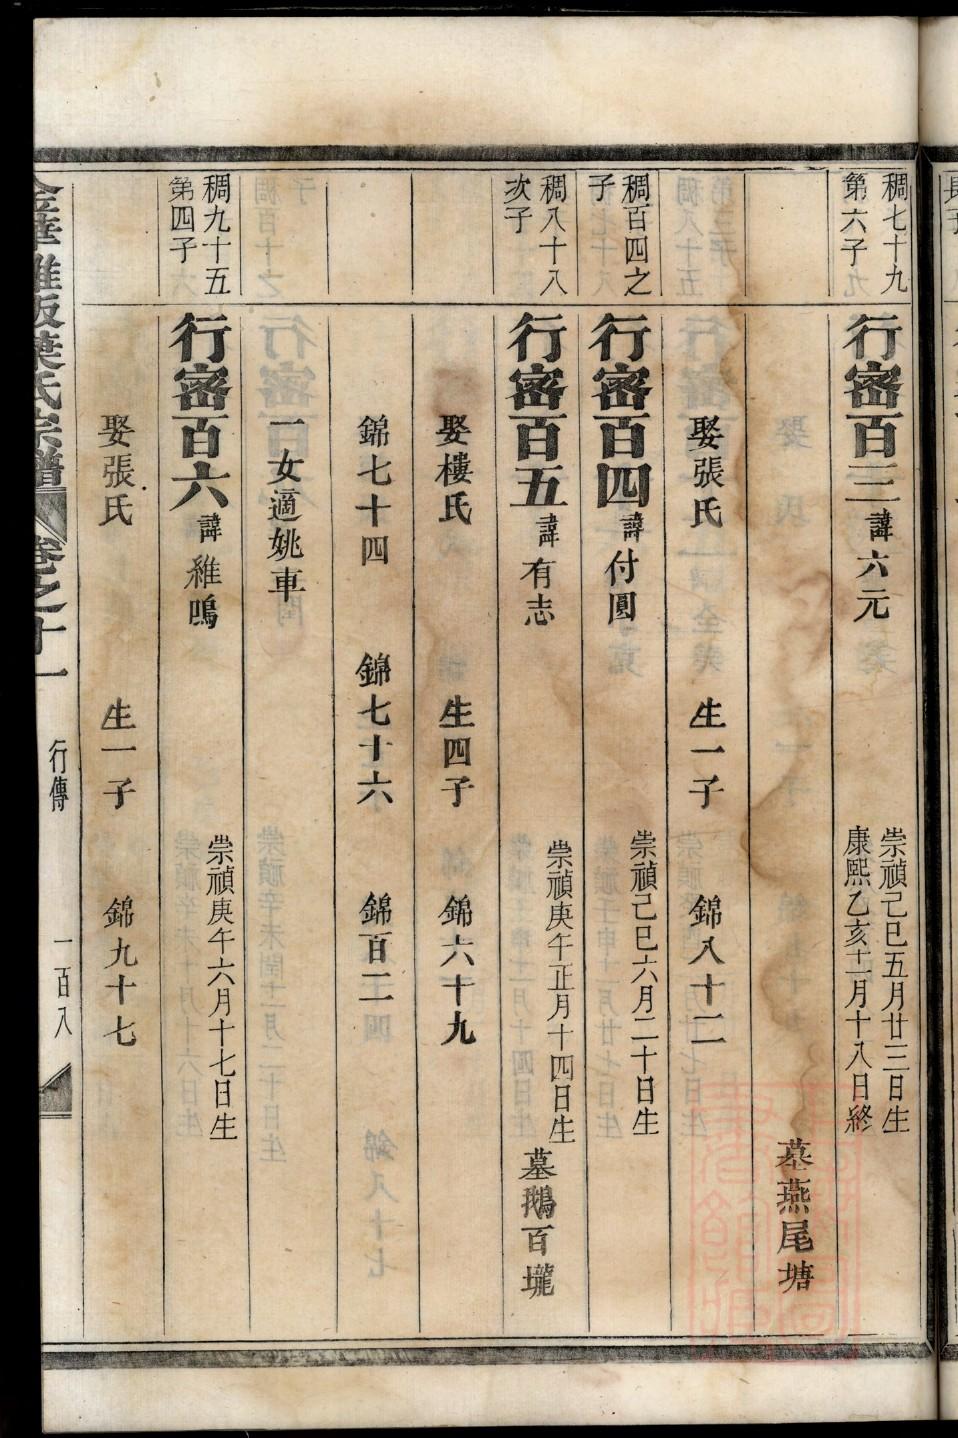 稠七十九
第六子
行密百三 諱六元
崇禎己巳五月廿三日生
康熙乙亥十一月十八日終
墓燕尾塘
娶張氏 生一子 錦八十二
稠百四之
子
行密百四 諱付圓 崇禎己巳六月二十日生
稠八十八
次子
行密百五 諱有志 崇禎庚午正月十四日生
墓鵝百壠
娶樓氏 生四子 錦六十九
錦七十四 錦七十六 錦百二
一女適姚車
稠九十五
第四子
行密百六 諱維鳴 崇禎庚午六月十七日生
娶張氏 生一子 錦九十七
氏宗譜 卷之十一 行傳 一百八